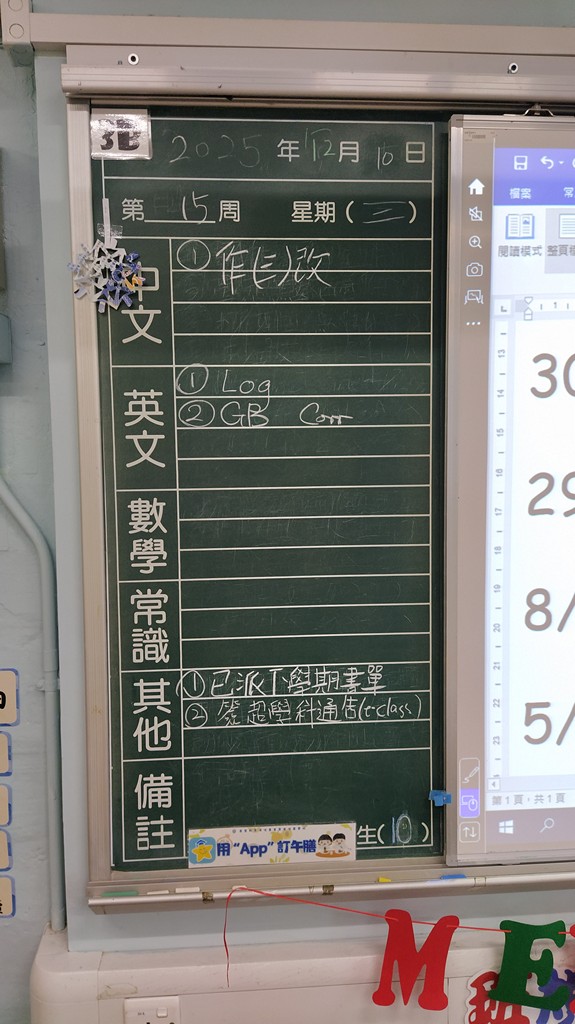 3E
2025年12月10日
第15周 星期(三)
中文
① 作(三)改
英文
① Log
② GB Corr
數學
常識
其他
① 已派下學期書單
② 發超學科通告(e-class)
備註
用 "App" 訂午膳
生(10)
檔案
常
閱讀模式
整頁模
30
29
8/
5/
第 1 頁，共 1 頁
ME